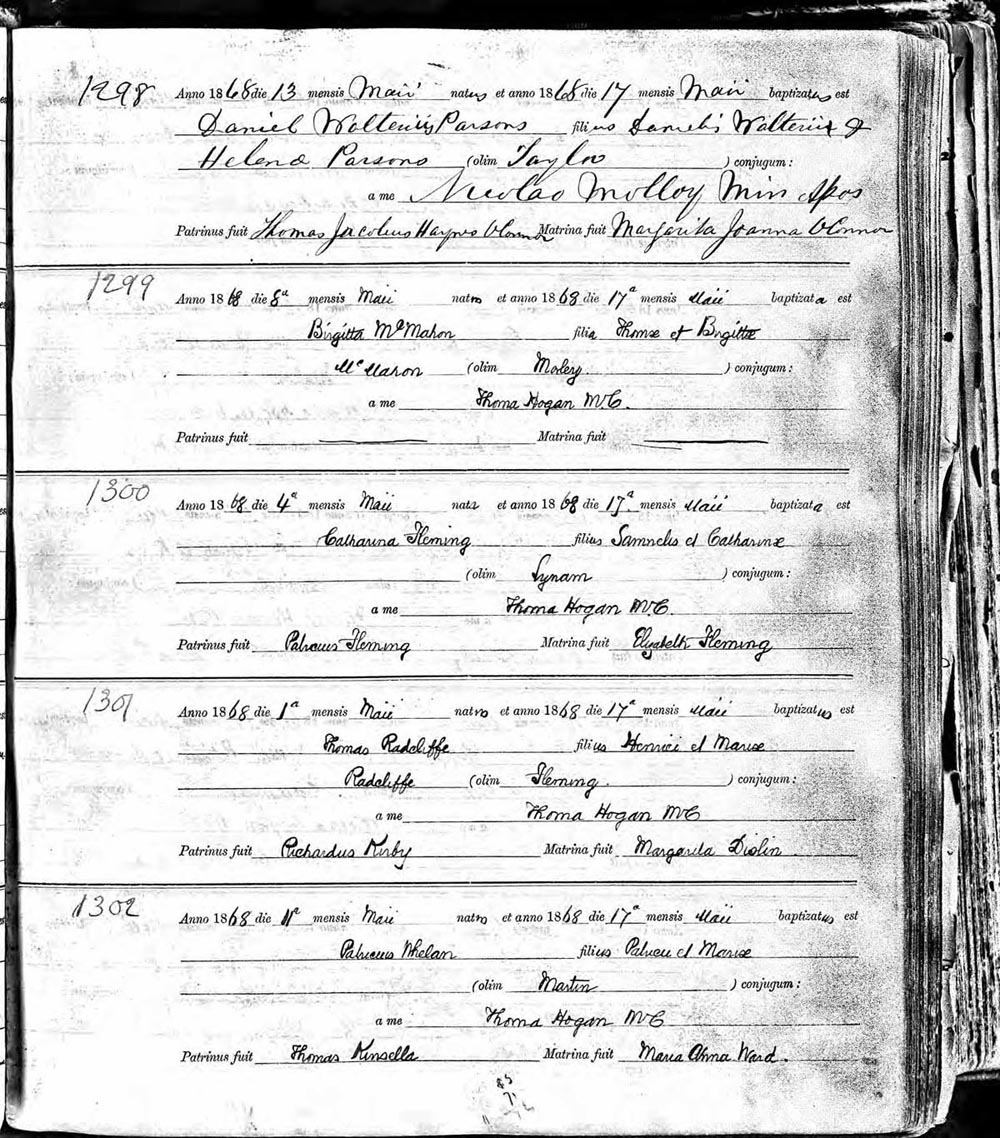 1298 Anno 1868 die 13 mensis Maii natus et anno 1868 die 17 mensis Maii baptizatus est
Daniel Walterius Parsons filius Danielis Walterii &
Helenæ Parsons (olim Taylor ) conjugum:
a me Nicolao Molloy Min Apos
Patrinus fuit Thomas Jacobus Haynes O'Connor Matrina fuit Margarita Joanna O'Connor
1299
Anno 1868 die 8a mensis Maii natus et anno 1868 die 17a mensis Maii baptizata est
Birgitta McMahon filia Thomæ et Birgittæ
McMahon (olim ) conjugum:
a me Thoma Hogan M.C.
Patrinus fuit Matrina fuit
1300
Anno 1868 die 4a mensis Maii nata et anno 1868 die 17a mensis Maii baptizata est
Catharina Fleming filius Samuelis et Catharinæ
(olim Lynam ) conjugum:
a me Thoma Hogan M.C.
Patrinus fuit Patricius Fleming Matrina fuit Elizabeth Fleming
1301
Anno 1868 die 1a mensis Maii natus et anno 1868 die 17a mensis Maii baptizatus est
Thomas Radcliffe filius Henrici et Mariæ
Radcliffe (olim Fleming. ) conjugum:
a me Thoma Hogan M.C
Patrinus fuit Richardus Kirby Matrina fuit Margarita
1302
Anno 1868 die 11a mensis Maii natus et anno 1868 die 17a mensis Maii baptizatus est
Patricius Whelan filius Patricii et Mariæ
(olim Martin ) conjugum:
a me Thoma Hogan M.C
Patrinus fuit Thomas Kinsella Matrina fuit Maria Anna Ward.